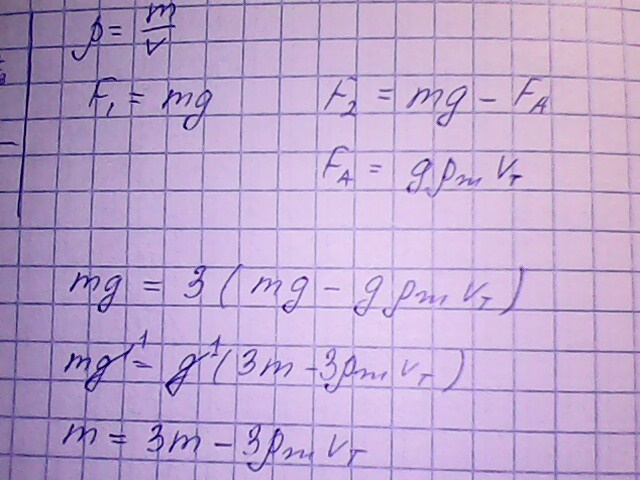 ρ = m/v
F₁ = mg F₂ = mg − F_A
F_A = gρ_m V_T
mg = 3(mg − gρ_m V_T)
mg¹ = g¹(3m − 3ρ_m V_T)
m = 3m − 3ρ_m V_T